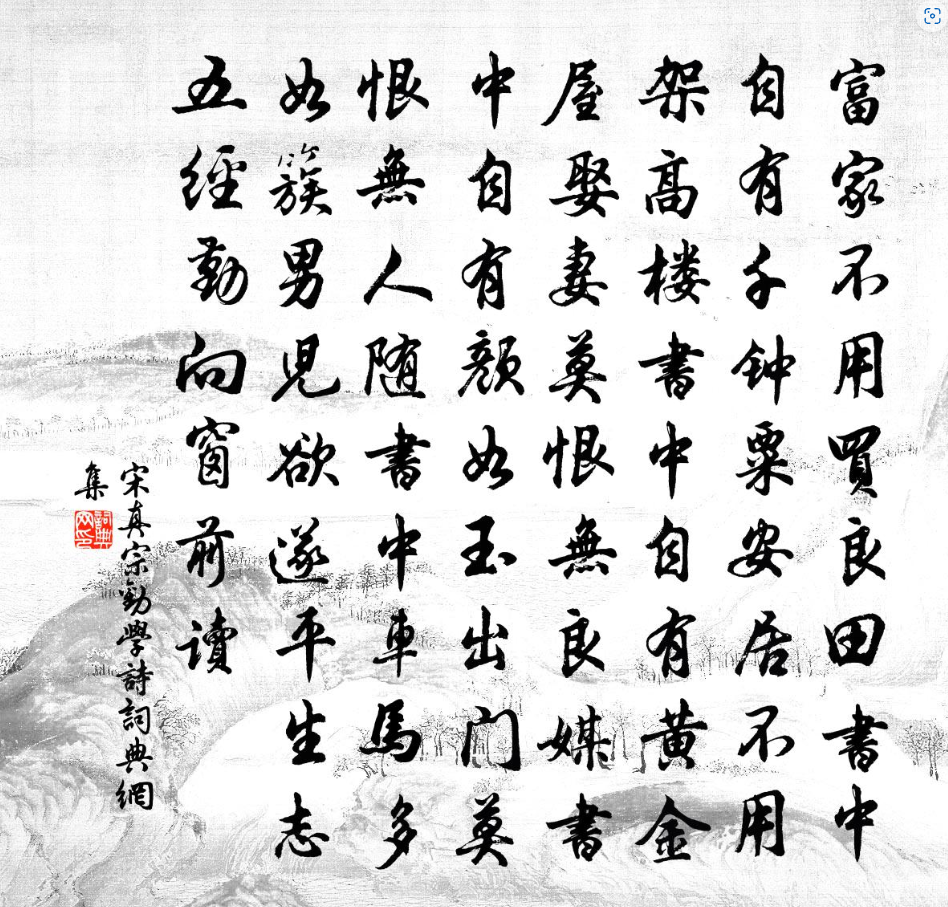 富家不用買良田書中
自有千钟粟安居不用
架髙楼書中自有黄金
屋娶妻莫恨無良媒書
中自有顔如玉出门莫
恨無人随書中車馬多
如簇男児欲遂平生志
五經勤向窗前读
宋真宗勧學詩詞典網
集
詞典网印